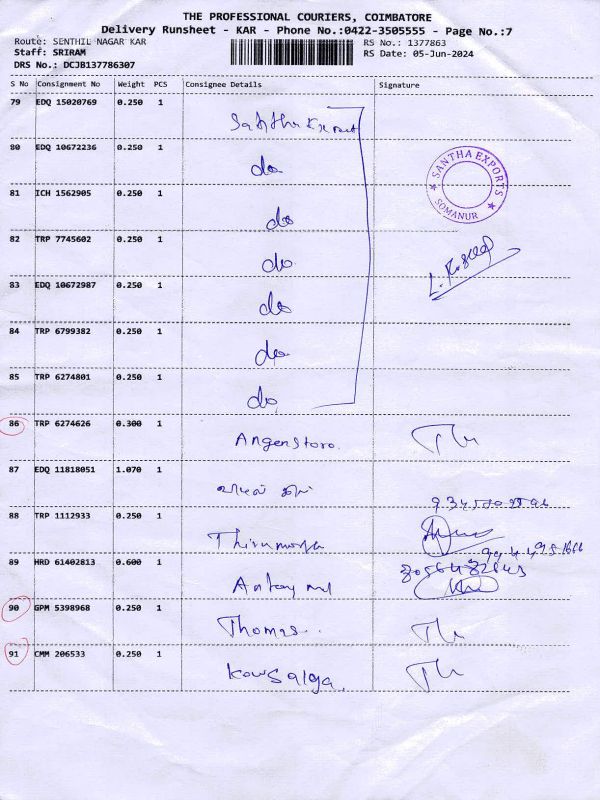 THE PROFESSIONAL COURIERS, COIMBATORE
Delivery Runsheet - KAR - Phone No.:0422-3505555 - Page No.:7
Route: SENTHIL NAGAR KAR
RS No.: 1377863
Staff: SRIRAM
RS Date: 05-Jun-2024
DRS No.: DCJB137786307
S No Consignment No Weight PCS Consignee Details Signature
79 EDQ 15020769 0.250 1
80 EDQ 10672236 0.250 1 do
SANTHA EXPORTS
SOMANUR
81 ICH 1562905 0.250 1 do
82 TRP 7745602 0.250 1 do
83 EDQ 10672987 0.250 1 do
84 TRP 6799382 0.250 1 do
85 TRP 6274801 0.250 1 do
86 TRP 6274626 0.300 1
87 EDQ 11818051 1.070 1
88 TRP 1112933 0.250 1
89 HRD 61402813 0.600 1
90 GPM 5398968 0.250 1 Thomas
91 CMM 206533 0.250 1 Kowsalya